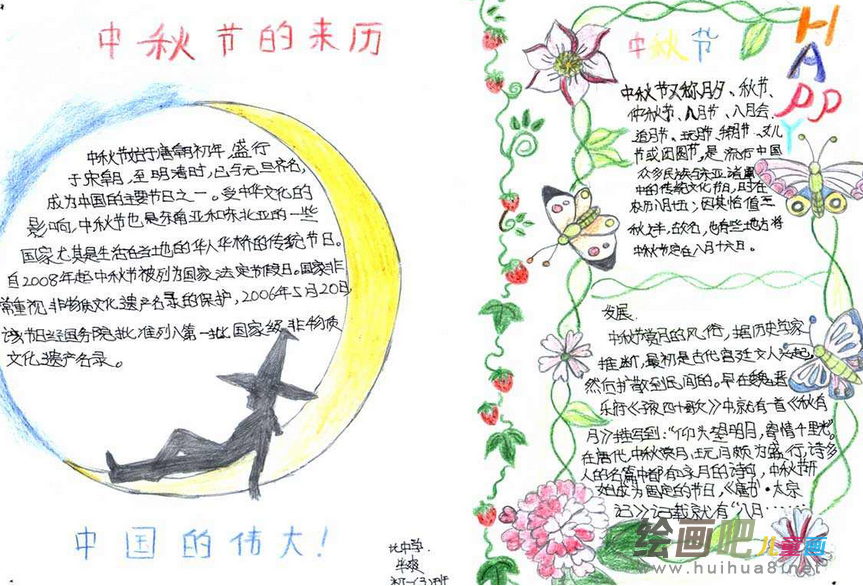 中秋节的来历
中秋节始于唐朝初年，盛行
于宋朝，至明清时，已与元旦齐名，
成为中国的主要节日之一。受中华文化的
影响，中秋节也是东南亚和东北亚的一些
国家尤其是生活在当地的华人华桥的传统节日。
自2008年起中秋节被列为国家法定节假日。国家非
常重视非物质文化遗产名录的保护，2006年5月20日
该节日经国务院批准列入第一批国家级非物质
文化遗产名录。
中国的伟大！
中秋节
HAPPY
中秋节又称月夕、秋节、
仲秋节、八月节、八月会、
追月节、玩月节、拜月节、女儿
节或团圆节，是流行中国
众多民族与东亚诸国
中的传统文化节日，时在
农历八月十五；因其恰值三
秋之半，故名，也有些地方将
中秋节定在八月十六日。
发展：
中秋节赏月的风俗，据历史学家
推断，最初是古代宫廷文人兴起，
然后扩散到民间的。早在魏晋
乐府《子夜四十歌》中就有一首《秋有
月》描写到：“仰头望明月，寄情千里光”。
在唐代，中秋赏月、玩月颇为盛行，许多
人的名篇中都有咏月的诗句，中秋节开
始成为固定的节日，《唐书·太宗
记》记载就有“八月……
初一(3)班
绘画吧儿童画
www.huihua8.net